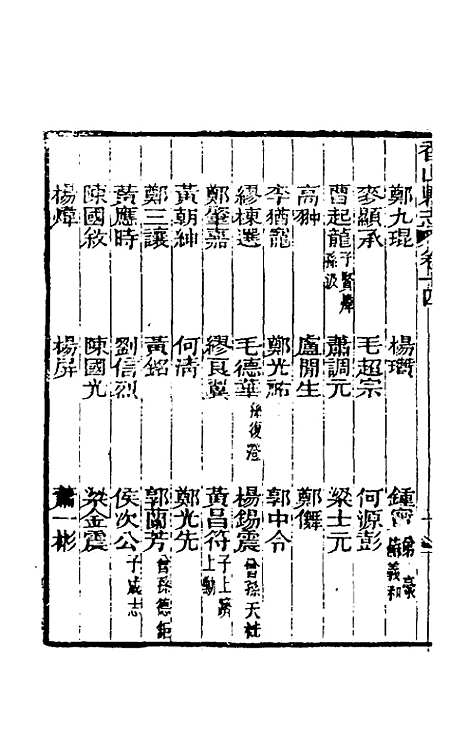 香山縣志 卷十四
鄭九琨 楊瓚 鍾 弟豪 義和
麥顯承 毛超宗 何源彭
曹起龍 子賢燁 孫汲 蕭調元 梁士元
高翀 盧開生 鄭儛
李猶龍 鄭光祐 郭中令
繆棟選 毛德華 孫復澄 楊錫震 曾孫天柱
鄭肇嘉 繆貢翼 黃昌符 子上躋 上勳
黃朝紳 何清 鄭光先
鄭三讓 黃銘 郭蘭芳 曾孫德鉅
黃應時 劉信烈 侯次公 子成志
陳國敘 陳國光 梁金震
楊煒 楊屏 蕭一彬